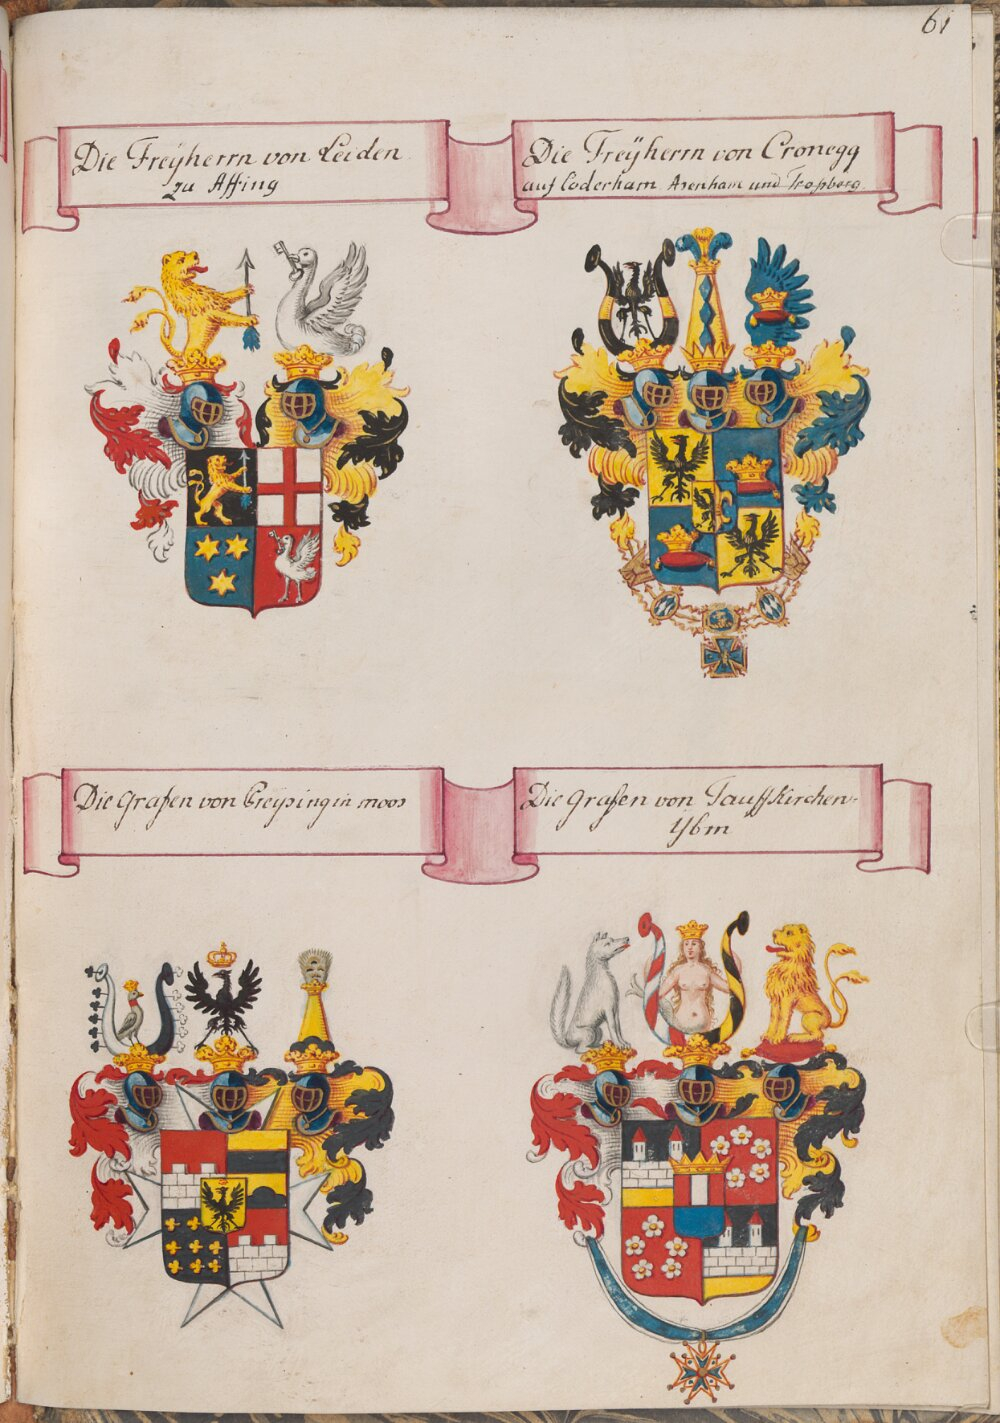 61
Die Freÿherrn von Leiden
zu Affing
Die Freÿherrn von Cronegg
auf Loderham Asenham und
Die Grafen von Preÿsing in moos
Die Grafen von Tauffkirchen-
Ybm